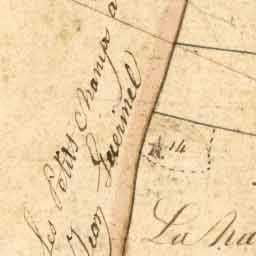 les Petits Champs a
Jean Guerinel
14
La ha